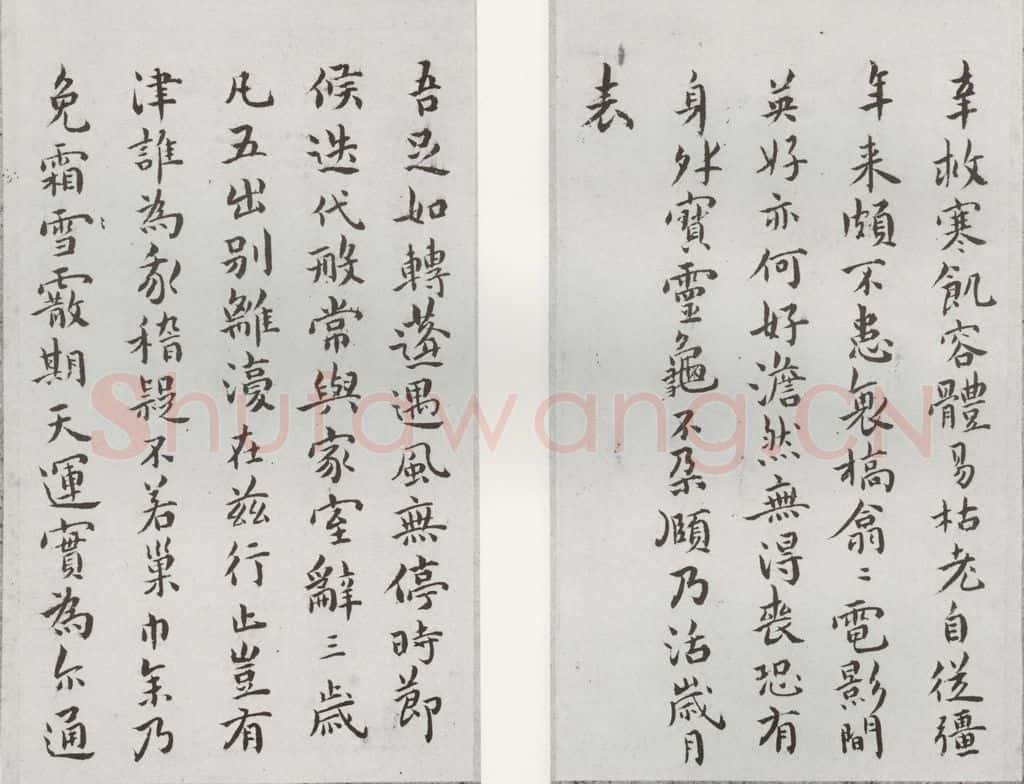 幸救寒飢容體易枯老自從彊
年来頗不患衰槁翕〻電影間
英好亦何好澹然無得喪恐有
身外寶靈龜不朶頤乃活歲月
表
吾足如轉蓬遇風無停時節
候迭代般常與家室辭三歲
凡五出別離在兹行止豈有
津誰為我稽疑不若巢乃
免霜雪霰期天運實為尓通
Shufawang.CN